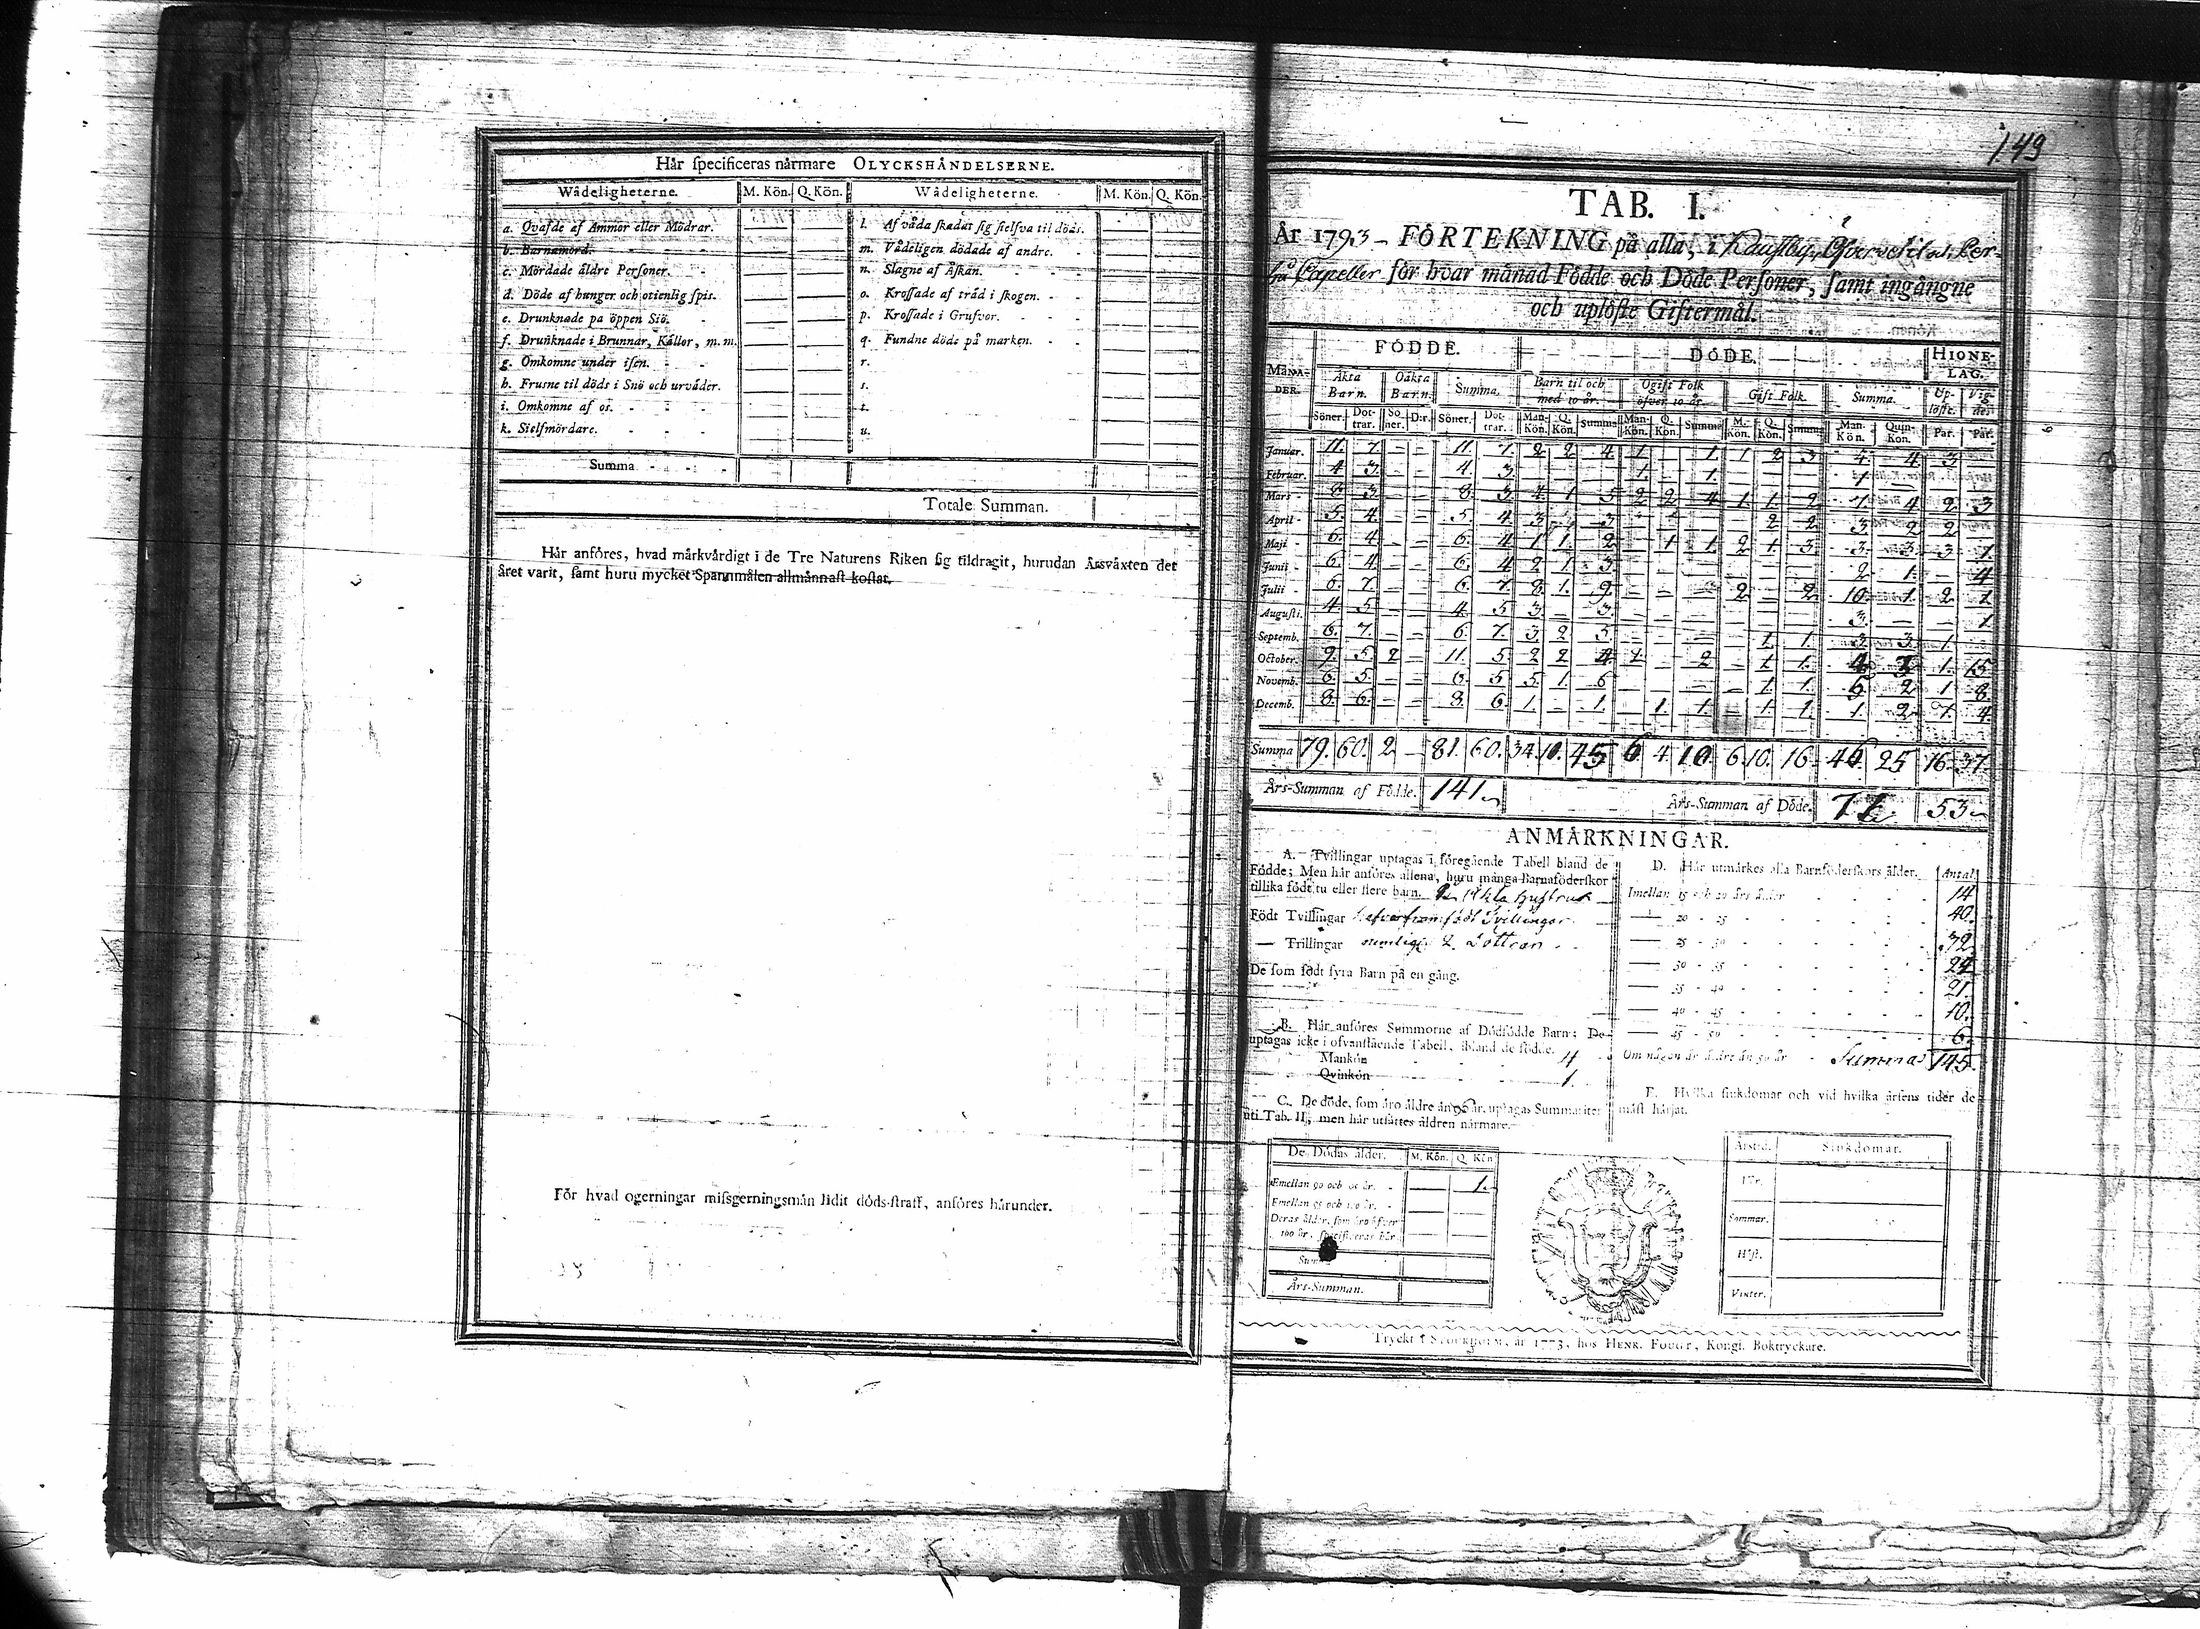 Hår specificeras nårmare OLYCKSHÅNDELSERNE.
Wådeligheterne. M. Kön. Q. Kön. Wådeligheterne. M. Kön. Q. Kön.
a. Qvafde af Ammor eller Mödrar. — — l. Af våda skadat sig sielfva til döds.
b. Barnamord. — — m. Vådeligen dödade af andre.
c. Mördade äldre Personer. — — n. Slagne af Åskan.
d. Döde af hunger och otienlig spis. — — o. Krossade af träd i skogen.
e. Drunknade pa öppen Siö. — — p. Krossade i Grufvor.
f. Drunknade i Brunnar, Källor, m.m. — — q. Fundne döde på marken.
g. Omkomne under isen. — — r.
h. Frusne til döds i Snö och urväder. — — s.
i. Omkomne af os. — — t.
k. Sielfmördare. — — u.
Summa
Totale Summan.
Hår anföres, hvad mårkvårdigt i de Tre Naturens Riken sig tildragit, hurudan Årsvåxten det
året varit, samt huru mycket Spannmålen allmånnast kostat.
För hvad ogerningar missgerningsmån lidit döds-straff, anföres hårunder.
149
TAB. I.
År 1793 - FÖRTEKNING på alla, i
Capeller för hvar månad Födde och Döde Personer, samt ingångne
och uplöste Giftermål.
MÅNADER. FÖDDE. DÖDE. HIONELAG.
Äkta Barn. Oäkta Barn. Summa. Barn til och med 10 år. Ogift Folk öfver 10 år. Gift Folk. Summa. Uplöste. Vigdes
Söner. Dottrar. Söner. D:r. Söner. Dottrar. Man-Kön. Q. Kön. Summa Man-Kön. Q. Kön. Summa M. Kön. Q. Kön. Summa Man-Kön. Quin-Kön. Par. Par.
Januar. 11. 7. — — 11. 7. 2 2 4. 1. — 1. 1 2 3 4. 4 3
Februar. 4 3. — — 4. 3 — — — 1. — 1. — — — 1 — — —
Mars 8 3. — — 8. 3 4. 1 5 2 2 4 1 1 2 7. 4 2 3
April 5. 4. — — 5. 4 3 — 3 — — — — 2 2 3 2 2 —
Maji 6. 4 — — 6. 4 1 1. 2 — 1 1. 2 1. 3 3 3 3 1
Junii 6. 4. — — 6. 4 2 1 3 — — — — — — 2 1. — 4
Julii 6. 7. — — 6. 7. 8 1. 9. — — — 2 — 2 10 1. 2 1
Augusti. 4 5 — — 4. 5 3 — 3. — — — — — — 3. — — 1
Septemb. 6. 7. — — 6. 7. 3 2 5 — — — — 1 1. 3 3 1 —
October. 9. 5 2 — 11. 5 2 2 4. 2. — 2 — 1. 1. 4 3 1. 15
Novemb. 6. 5 — — 6. 5 5. 1. 6 — — — — 1. 1. 5 2 1 8.
Decemb. 8. 6. — — 8. 6 1. — 1. — 1. 1. — 1. 1. 1. 2 1. 4.
Summa 79. 60. 2 — 81. 60. 34. 10. 45 6 4 10. 6 10. 16 46. 25 16. 37
Års-Summan af Födde. 141. Års-Summan af Döde. 71. 53
ANMÄRKNINGAR.
A. Tvillingar uptagas i föregående Tabell bland de
Födde; Men hår anföres allena, huru många Barnaföderskor
tillika födt tu eller flere barn. Äkta hustrur
Födt Tvillingar
— Trillingar 2 Dottrar
De som födt fyra Barn på en gång.
B. Hår anföres Summorne af Dödfödde Barn: De
uptagas icke i ofvanstående Tabell, ibland de födde.
Mankön 4
Qvinkön 1.
C. De döde, som åro åldre ån 90 år, uptagas Summariter
uti Tab. II; men hår utsåttes åldren nårmare.
De Dödas ålder. M. Kön. Q. Kön
Emellan 90 och 95 år. — 1.
Emellan 95 och 100 år. — —
Deras ålder, som åro öfver
100 år, specificeras hår. — —
Summa
Års-Summan.
D. Hår utmårkes alla Barnföderskors ålder. Antal
Imellan 15 och 20 års ålder 14
— 20 - 25 40.
— 25 - 30 32
— 30 - 35 24
— 35 - 40 21.
— 40 - 45 10.
— 45 - 50 6.
Om någon är äldre än 50 år - Summa 145.
E. Hvilka siukdomar och vid hvilka årsens tider de
måst hårjat.
Årstid. Siukdomar.
Vår.
Sommar.
Höst.
Vinter.
Tryckt i STOCKHOLM, år 1773, hos HENR. FOUGT, Kongl. Boktryckare.